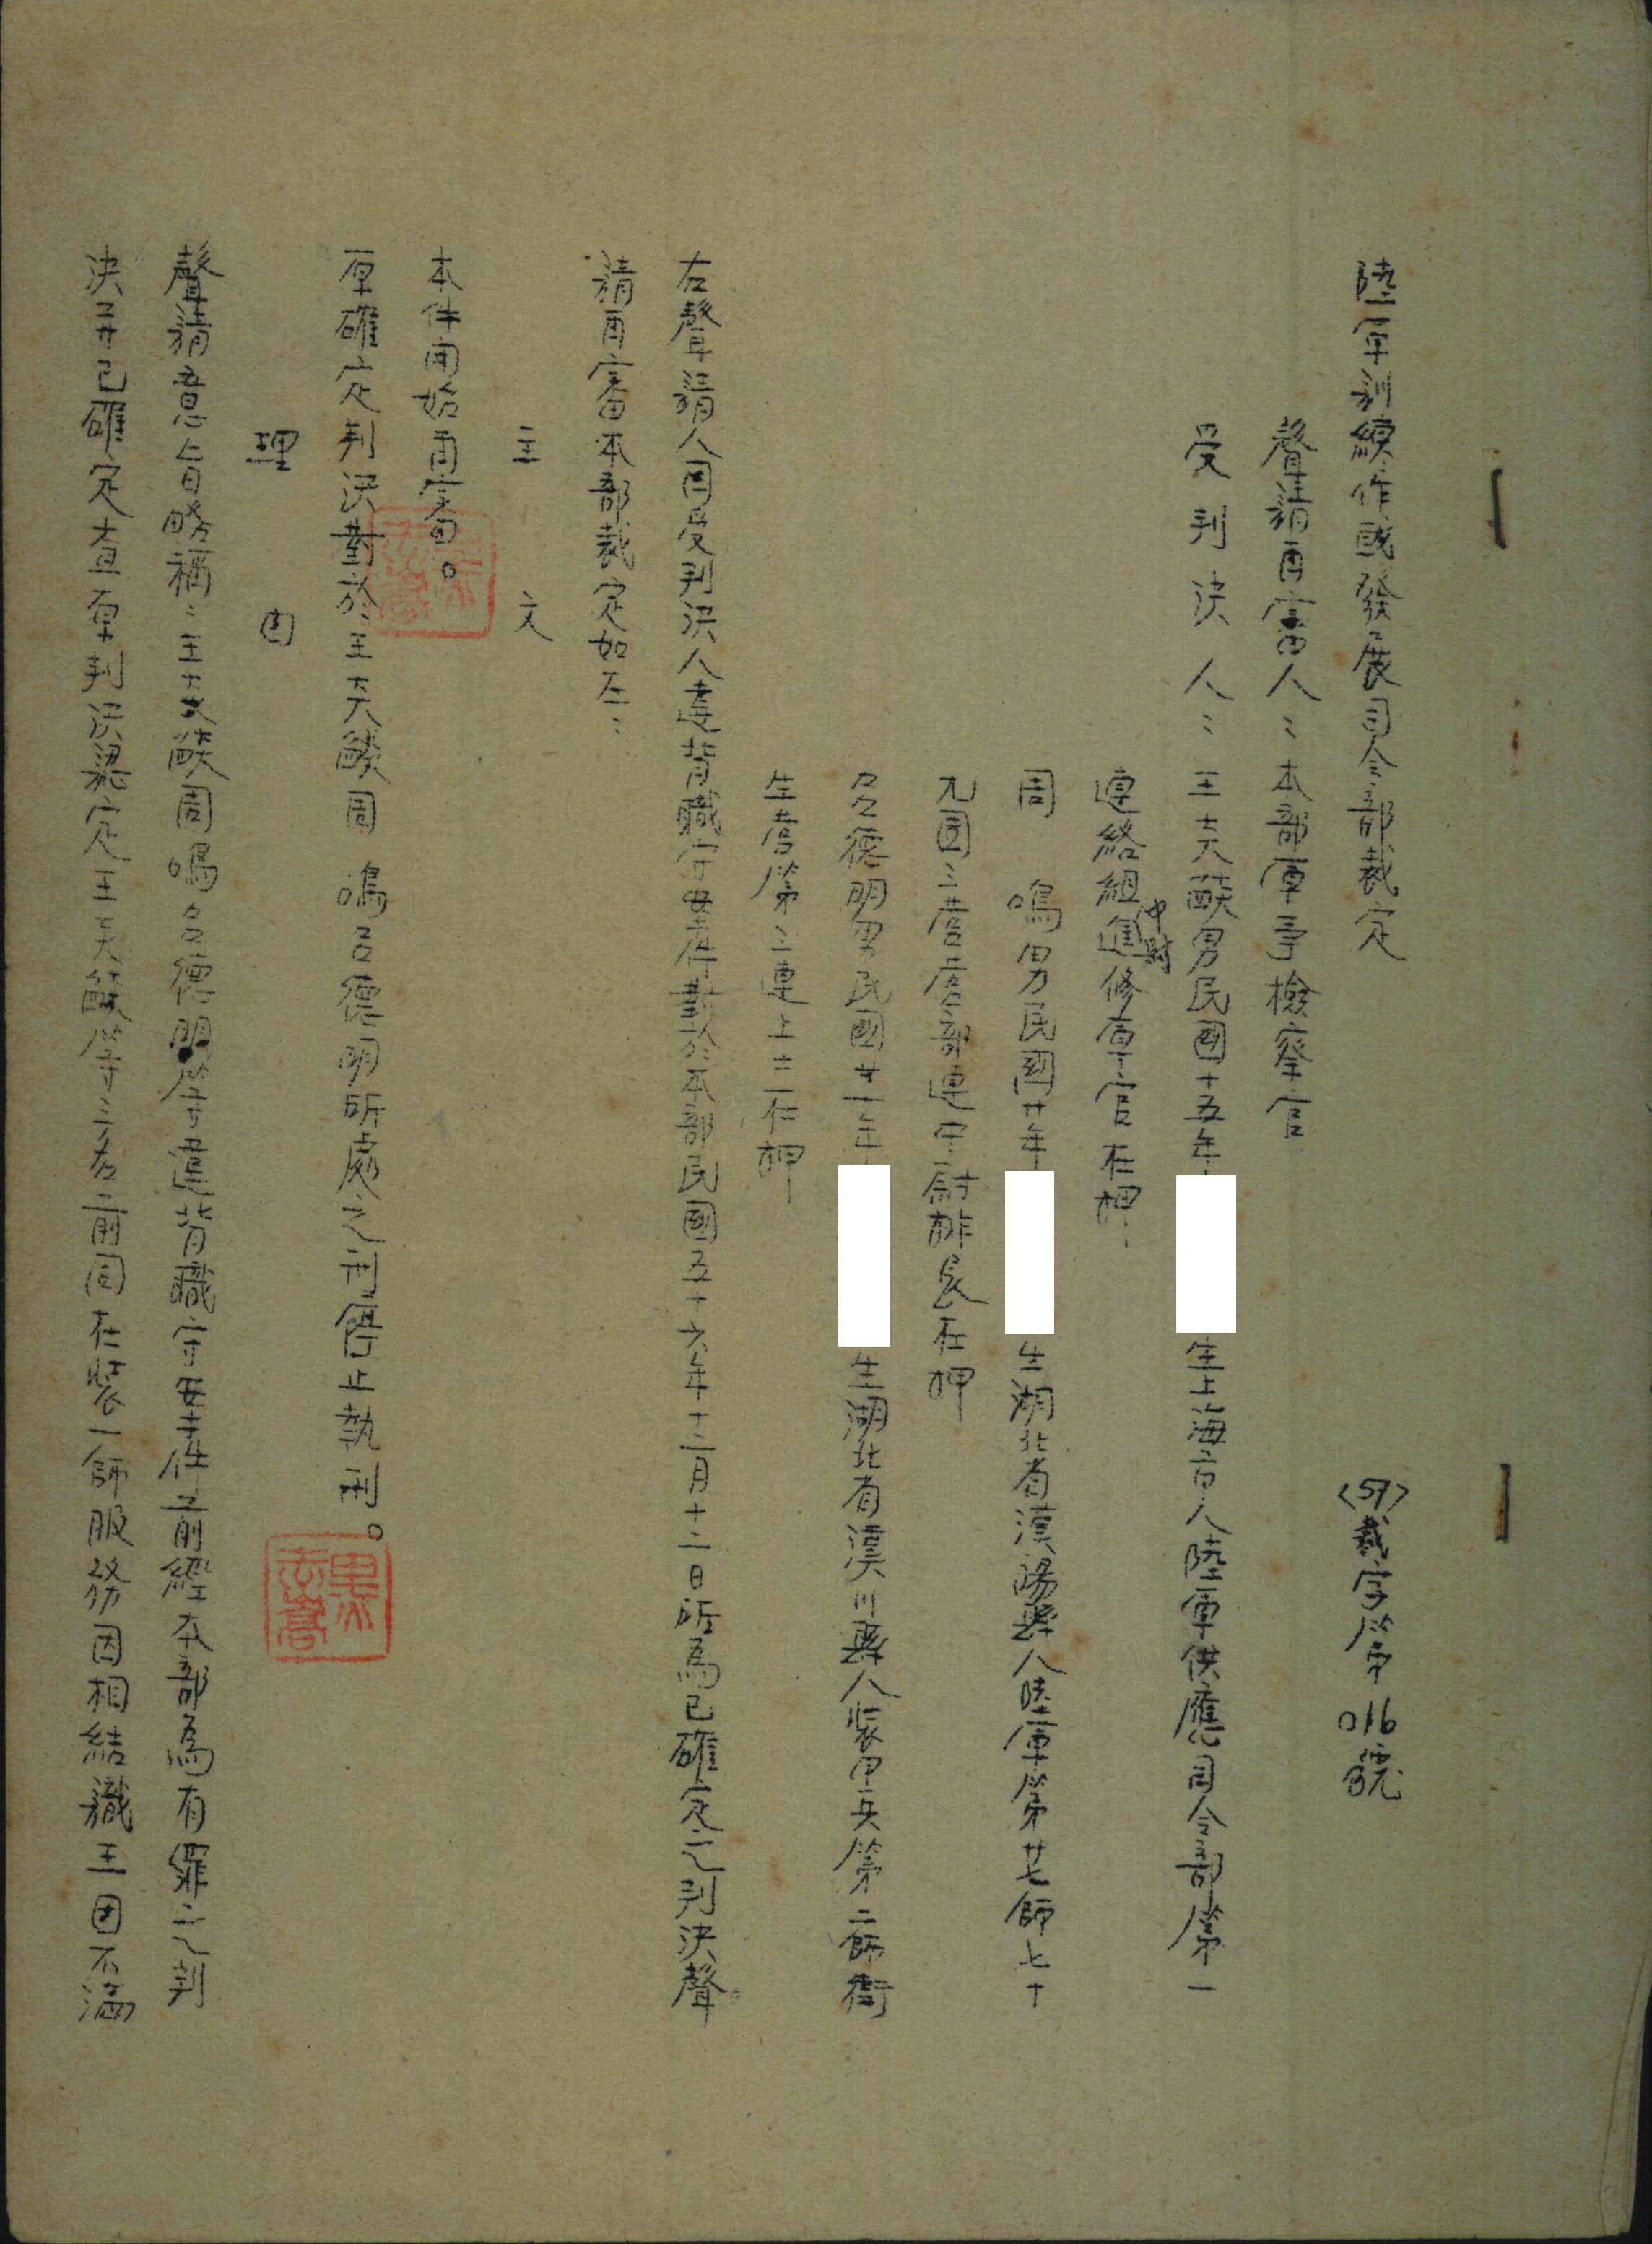 陸軍訓練作戰發展司令部裁定
〈57〉裁字第016號
聲請再審人：本部軍事檢察官
受判決人：王天燄男民國十五年
生上海市人陸軍供應司令部第一
連絡組進修軍官在押
中尉
周鳴男民國廿年
生湖北省漢陽縣人陸軍第廿七師七十
九團三營營部連中尉排長在押
呂德明男民國廿一年
生湖北省漢川縣人裝甲兵第二師衛
生營第三連上士在押
右聲請人因受判決人違背職守案件對於本部民國五十六年十二月十二日所為已確定之判決聲
請再審本部裁定如左：
主文
本件開始再審。
原確定判決對於王天燄周鳴呂德明所處之刑停止執刑。
理由
聲請意旨略稱：王天燄周鳴呂德明等違背職守案件前經本部為有罪之判
決並已確定查原判決認定王天燄等三名前同在裝一師服務因相結識王因不滿